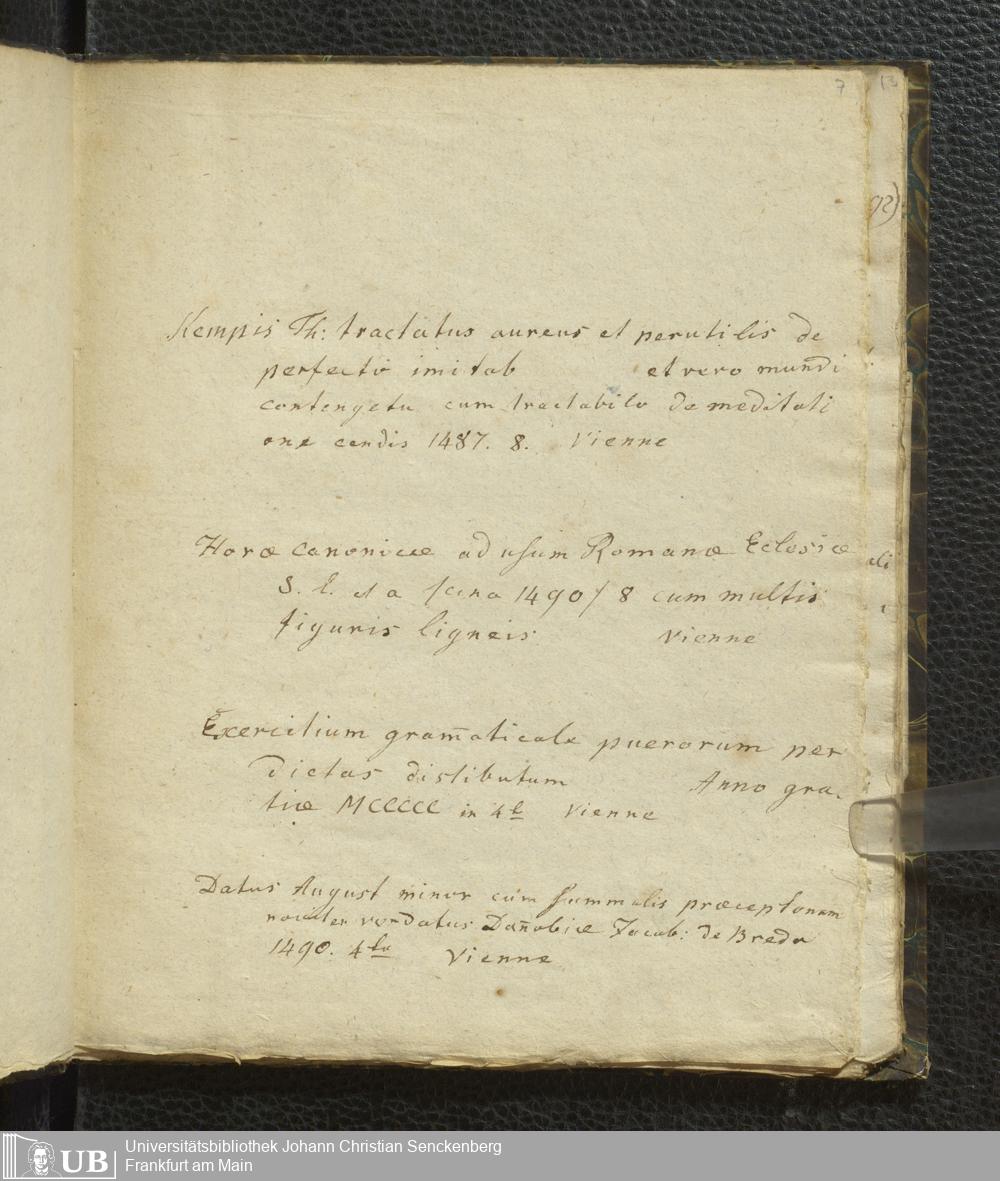 7 13
92)
Kempis Th: tractatus aureus et perutilis de
perfecto imitab et vero mundi
contengetu cum tractabilo de meditati
one cendis 1487. 8. Vienne
Horæ canonicæ ad usum Romanæ Eclesiæ
S. l. et a 1490/8 cum multis
figuris ligneis Vienne
Exercitium gram̄aticale puerorum per
dictas distibutum Anno gra-
tiæ MCCCCC in 4t Vienne
Datus August minor cum summalis præceptorum
noviter Jacob: de Breda
1490. 4to Vienne
UB
Universitätsbibliothek Johann Christian Senckenberg
Frankfurt am Main